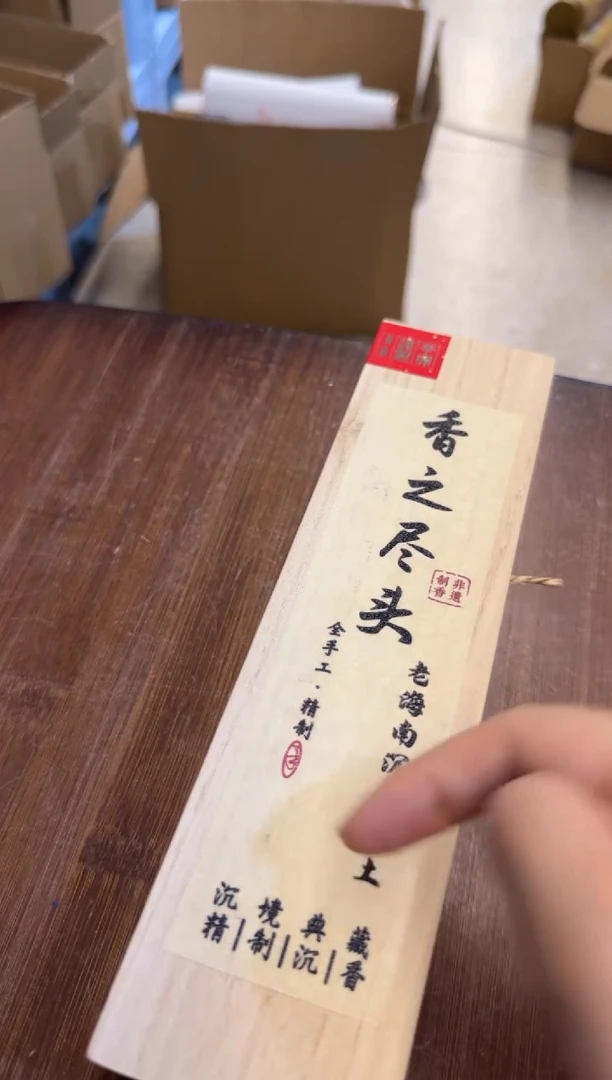 香之尽头
非遺
制香
老海南沉
土
全手工·精制
沉境典藏
精|制|沉|香